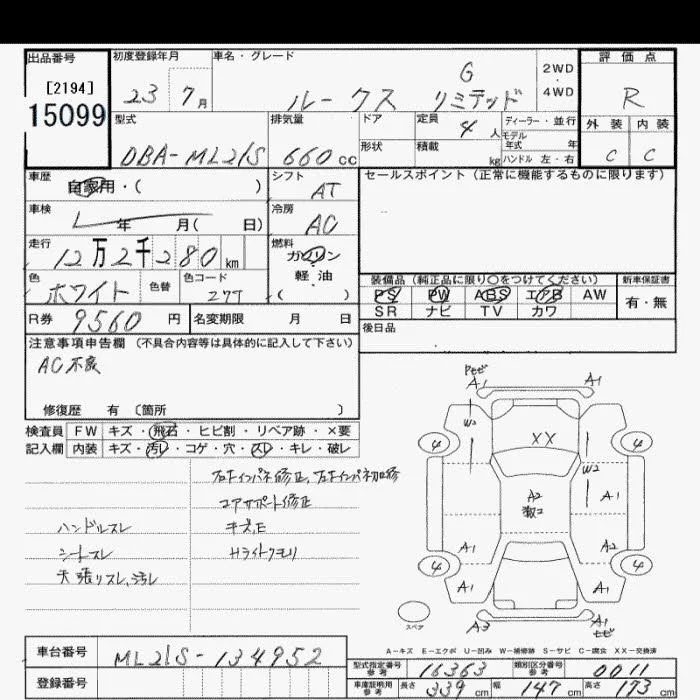 出品番号 初度登録年月 車名・グレード 評価点
[2194] 23 7月 ルークス G リミテッド 2WD・4WD R
15099
型式 排気量 ドア 定員 4人 ディーラー・並行 外装 内装
DBA-ML21S 660cc 形状 積載 kg モデル年式 年 C C
ハンドル 左・右
車歴 自家用・( ) シフト AT セールスポイント(正常に機能するものに限ります)
車検 年 月( 日) 冷房 AC
走行 12万2千280km 燃料 ガソリン
軽油
( )
色 ホワイト 色替 色コード 27T
装備品(純正品に限り○をつけてください) 新車保証書
PS PW ABS エアB AW 有・無
SR ナビ TV カワ
R券 9560円 名変期限 月 日 後日品
注意事項申告欄(不具合内容等は具体的に記入して下さい)
AC不良
修復歴 有〔箇所 〕
検査員 FW キズ・飛石・ヒビ割・リペア跡・×要
記入欄 内装 キズ・汚レ・コゲ・穴・スレ・キレ・破レ
コアサポート修正
ハンドルスレ キズ,E
シートスレ Hライトクモリ
天張リスレ,汚レ
A1 A1
W2
4 XX 4
W2
A2 A1
A1 A2
4 4
A1 A1
スペア A3 A1
A-キズ E-エクボ U-凹み W-補修跡 S-サビ C-腐食 XX-交換済
車台番号 ML21S-134952
登録番号
型式指定番号 参考 16363 類別区分番号 参考 0011
車庫証明用 参考 長さ 339cm 幅 147cm 高さ 173cm